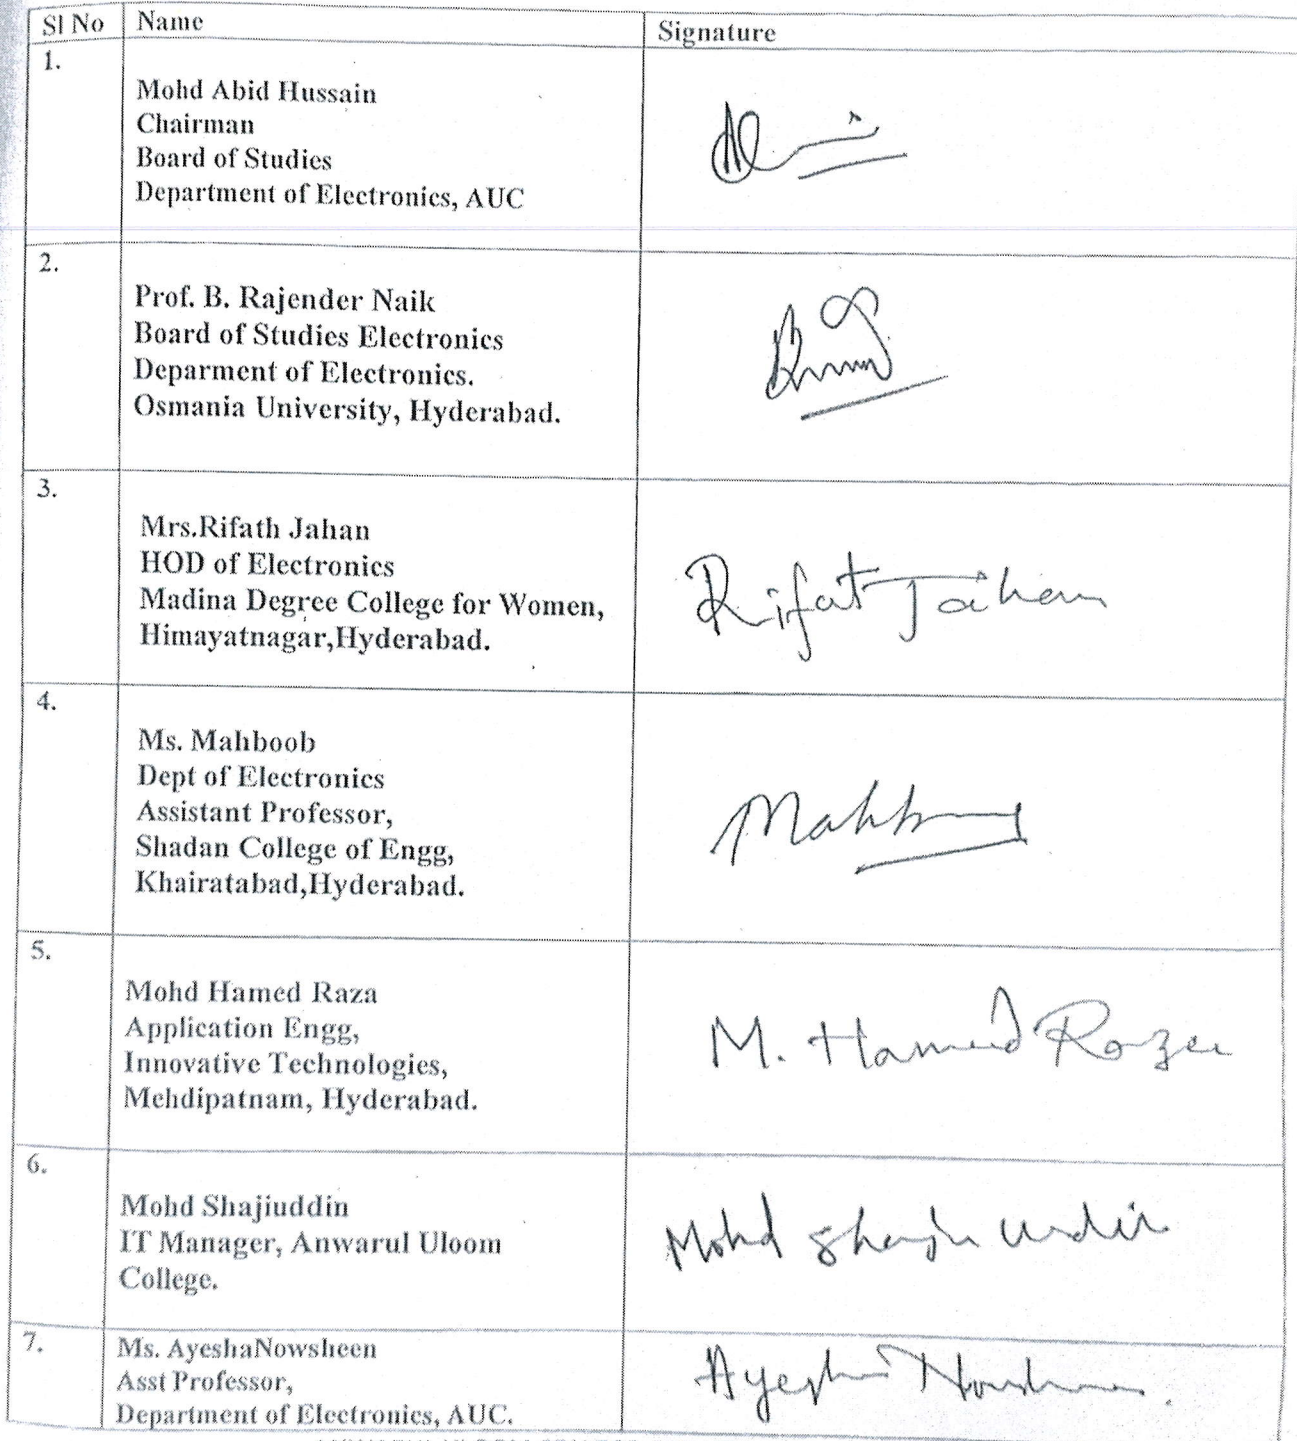 Sl No Name Signature
1.
Mohd Abid Hussain
Chairman
Board of Studies
Department of Electronics, AUC
2.
Prof. B. Rajender Naik
Board of Studies Electronics
Deparment of Electronics.
Osmania University, Hyderabad.
3.
Mrs.Rifath Jahan
HOD of Electronics
Madina Degree College for Women,
Himayatnagar,Hyderabad.
Rifat Jahan
4.
Ms. Mahboob
Dept of Electronics
Assistant Professor,
Shadan College of Engg,
Khairatabad,Hyderabad.
5.
Mohd Hamed Raza
Application Engg,
Innovative Technologies,
Mehdipatnam, Hyderabad.
M. Hamed Raza
6.
Mohd Shajiuddin
IT Manager, Anwarul Uloom
College.
Mohd Shaji uddin
7.
Ms. AyeshaNowsheen
Asst Professor,
Department of Electronics, AUC.
Ayesha